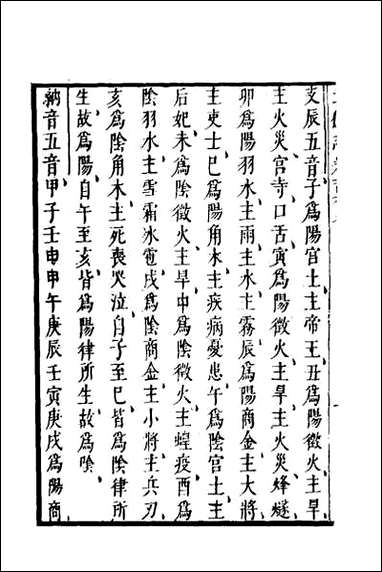 支辰五音子爲陽宫土主帝王丑爲陽徵火主旱
主火災宫寺口舌寅爲陽徵火主旱主火災烽燧
卯爲陽羽水主雨主水主霧辰爲陽商金主大將
主吏士巳爲陽角木主疾病憂患午爲陰官土主
后妃未爲陰徵火主旱申爲陰徵火主蝗疫酉爲
陰羽水主雪霜氷雹戌爲陰商金主小將主兵刃
亥爲陰角木主死喪哭泣自子至巳皆爲陰律所
生故爲陽自午至亥皆爲陽律所生故爲陰
納音五音甲子壬申甲午庚辰壬寅庚戌爲陽商